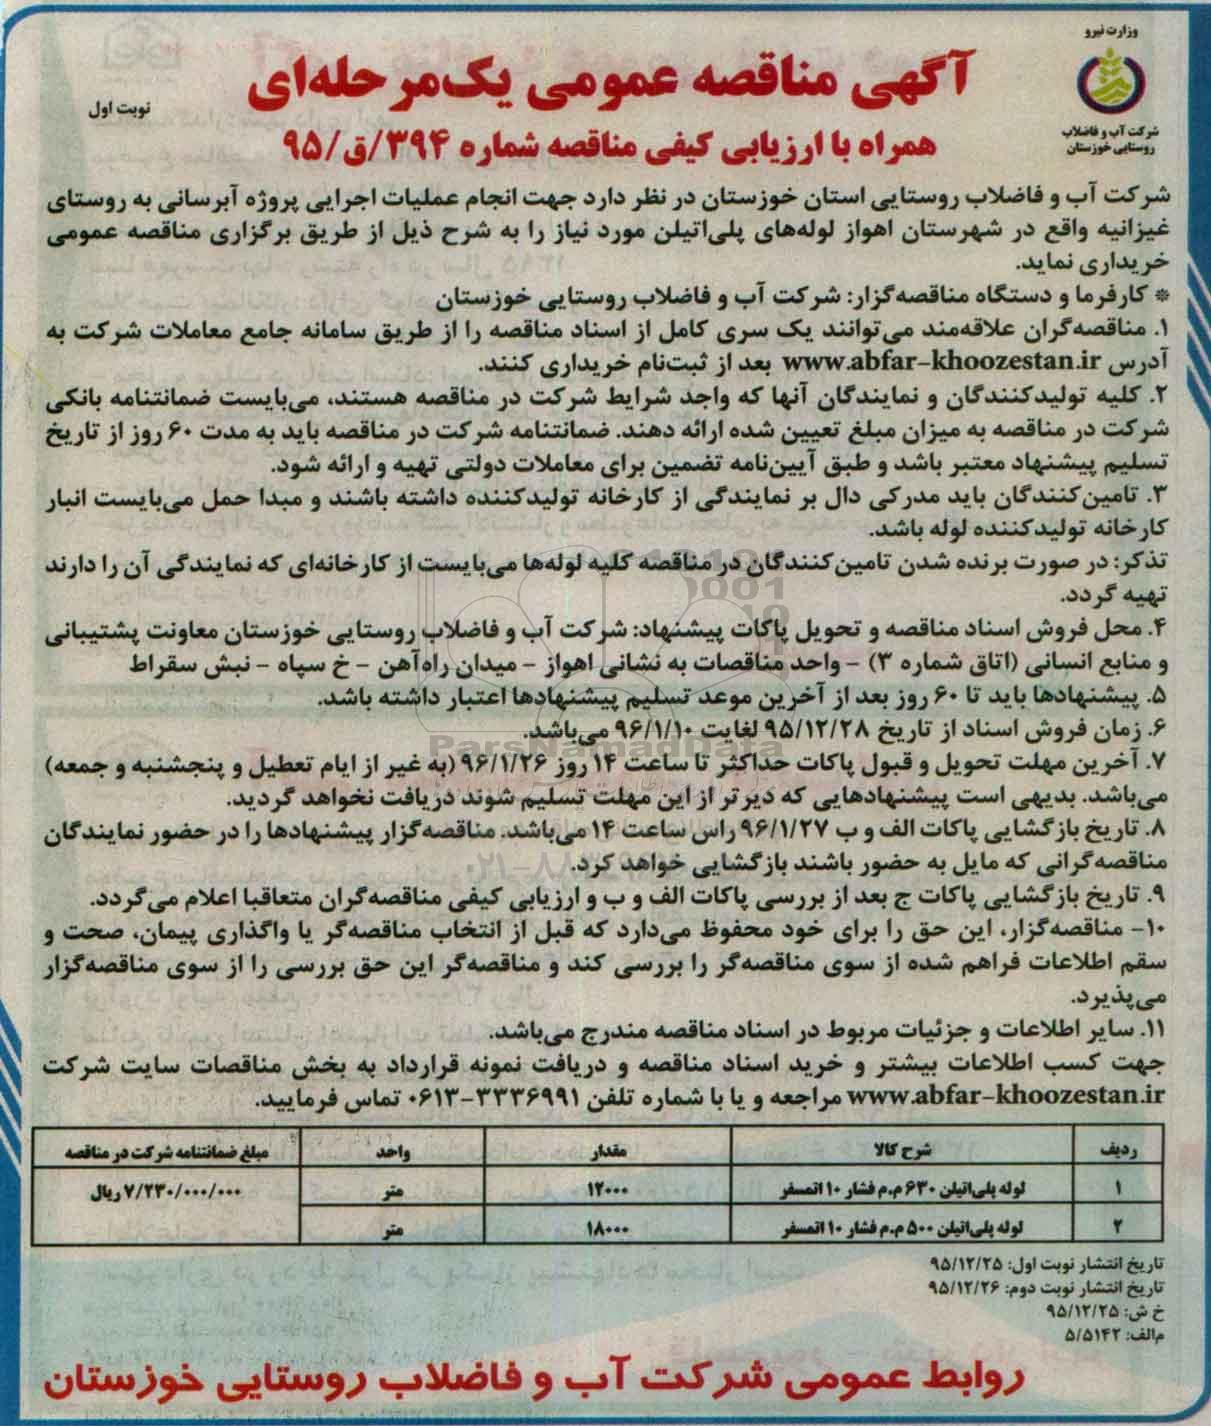 وزارت نیرو
شرکت آب و فاضلاب
روستایی خوزستان
آگهی مناقصه عمومی یک‌مرحله‌ای
نوبت اول
همراه با ارزیابی کیفی مناقصه شماره ۳۹۴/ق/۹۵
شرکت آب و فاضلاب روستایی استان خوزستان در نظر دارد جهت انجام عملیات اجرایی پروژه آبرسانی به روستای
غیزانیه واقع در شهرستان اهواز لوله‌های پلی‌اتیلن مورد نیاز را به شرح ذیل از طریق برگزاری مناقصه عمومی
خریداری نماید.
* کارفرما و دستگاه مناقصه‌گزار: شرکت آب و فاضلاب روستایی خوزستان
۱. مناقصه‌گران علاقه‌مند می‌توانند یک سری کامل از اسناد مناقصه را از طریق سامانه جامع معاملات شرکت به
آدرس www.abfar-khoozestan.ir بعد از ثبت‌نام خریداری کنند.
۲. کلیه تولیدکنندگان و نمایندگان آنها که واجد شرایط شرکت در مناقصه هستند، می‌بایست ضمانتنامه بانکی
شرکت در مناقصه به میزان مبلغ تعیین شده ارائه دهند. ضمانتنامه شرکت در مناقصه باید به مدت ۶۰ روز از تاریخ
تسلیم پیشنهاد معتبر باشد و طبق آیین‌نامه تضمین برای معاملات دولتی تهیه و ارائه شود.
۳. تامین‌کنندگان باید مدرکی دال بر نمایندگی از کارخانه تولیدکننده داشته باشند و مبدا حمل می‌بایست انبار
کارخانه تولیدکننده لوله باشد.
تذکر: در صورت برنده شدن تامین‌کنندگان در مناقصه کلیه لوله‌ها می‌بایست از کارخانه‌ای که نمایندگی آن را دارند
تهیه گردد.
۴. محل فروش اسناد مناقصه و تحویل پاکات پیشنهاد: شرکت آب و فاضلاب روستایی خوزستان معاونت پشتیبانی
و منابع انسانی (اتاق شماره ۳) - واحد مناقصات به نشانی اهواز - میدان راه‌آهن - خ سپاه - نبش سقراط
۵. پیشنهادها باید تا ۶۰ روز بعد از آخرین موعد تسلیم پیشنهادها اعتبار داشته باشد.
۶. زمان فروش اسناد از تاریخ ۹۵/۱۲/۲۸ لغایت ۹۶/۱/۱۰ می‌باشد.
ParsNamadData
۷. آخرین مهلت تحویل و قبول پاکات حداکثر تا ساعت ۱۴ روز ۹۶/۱/۲۶ (به غیر از ایام تعطیل و پنجشنبه و جمعه)
می‌باشد. بدیهی است پیشنهادهایی که دیرتر از این مهلت تسلیم شوند دریافت نخواهد گردید.
۸. تاریخ بازگشایی پاکات الف و ب ۹۶/۱/۲۷ راس ساعت ۱۴ می‌باشد. مناقصه‌گزار پیشنهادها را در حضور نمایندگان
مناقصه‌گرانی که مایل به حضور باشند بازگشایی خواهد کرد.
۹. تاریخ بازگشایی پاکات ج بعد از بررسی پاکات الف و ب و ارزیابی کیفی مناقصه‌گران متعاقبا اعلام می‌گردد.
۱۰- مناقصه‌گزار، این حق را برای خود محفوظ می‌دارد که قبل از انتخاب مناقصه‌گر یا واگذاری پیمان، صحت و
سقم اطلاعات فراهم شده از سوی مناقصه‌گر را بررسی کند و مناقصه‌گر این حق بررسی را از سوی مناقصه‌گزار
می‌پذیرد.
۱۱. سایر اطلاعات و جزئیات مربوط در اسناد مناقصه مندرج می‌باشد.
جهت کسب اطلاعات بیشتر و خرید اسناد مناقصه و دریافت نمونه قرارداد به بخش مناقصات سایت شرکت
www.abfar-khoozestan.ir مراجعه و یا با شماره تلفن ۳۳۳۶۹۹۱-۰۶۱۳ تماس فرمایید.
ردیف شرح کالا مقدار واحد مبلغ ضمانتنامه شرکت در مناقصه
۱ لوله پلی‌اتیلن ۶۳۰ م.م فشار ۱۰ اتمسفر ۱۲۰۰۰ متر ۷/۲۳۰/۰۰۰/۰۰۰ ریال
۲ لوله پلی‌اتیلن ۵۰۰ م.م فشار ۱۰ اتمسفر ۱۸۰۰۰ متر
تاریخ انتشار نوبت اول: ۹۵/۱۲/۲۵
تاریخ انتشار نوبت دوم: ۹۵/۱۲/۲۶
خ ش: ۹۵/۱۲/۲۵
م‌الف: ۵/۵۱۴۲
روابط عمومی شرکت آب و فاضلاب روستایی خوزستان